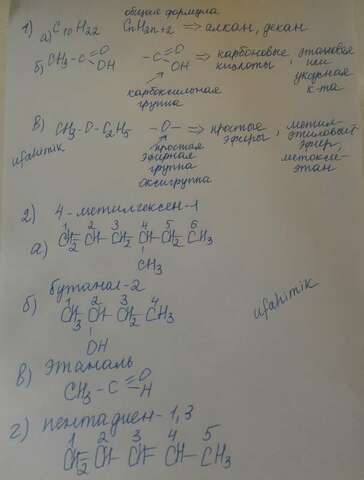 общая формула
1) а) C10H22 CnH2n+2 ⇒ алкан, декан
б) CH3-C=O OH -C=O OH ⇒ карбоновые кислоты, этановая или уксусная к-та
карбоксильная группа
в) CH3-O-C2H5 -O- ⇒ простые эфиры, метил-этиловый эфир, метокси-этан
простая эфирная группа
оксигруппа
ufahimik
2) 4-метилгексен-1
1 2 3 4 5 6
а) CH2 CH-CH2-CH-CH2-CH3
CH3
б) бутанол-2
1 2 3 4
CH3 CH-CH2-CH3
OH
ufahimik
в) этаналь
CH3-C=O H
г) пентадиен-1,3
1 2 3 4 5
CH2 CH CH CH-CH3